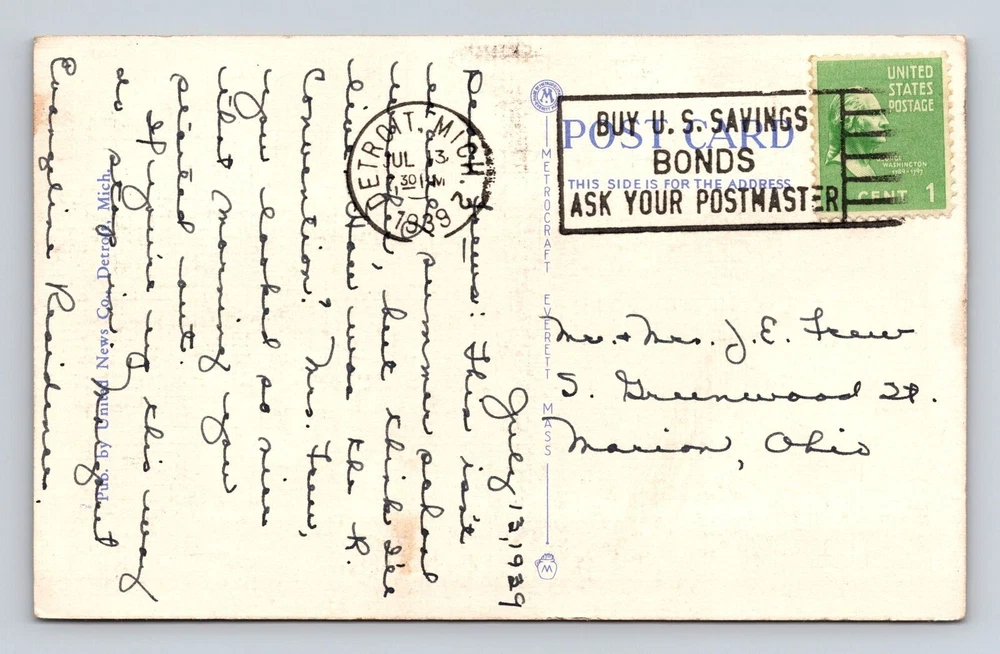 UNITED
STATES
POSTAGE
GEORGE
WASHINGTON
1789-1797
CENT 1
BUY U. S. SAVINGS
BONDS
ASK YOUR POSTMASTER
DETROIT, MICH. 2
JUL 13
30 PM
1939
POST CARD
THIS SIDE IS FOR THE ADDRESS
METROCRAFT EVERETT MASS
Pub. by United News Co., Detroit, Mich.
July 12, 1939
Dear Frews: This isn't
summer school
, but think I'll
live. How was the R.
Convention? Mrs. Frew,
you looked so nice
that morning you
started out.
If you're up this way
do stop in. Margaret
Evangeline Residence.
Mr. + Mrs. J. E. Frew
S. Greenwood St.
Marion, Ohio